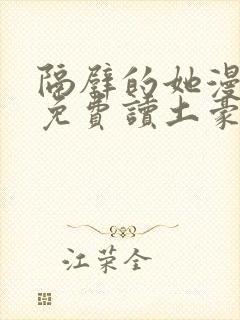 隔壁的她漫
免費讀土豪
江荣全